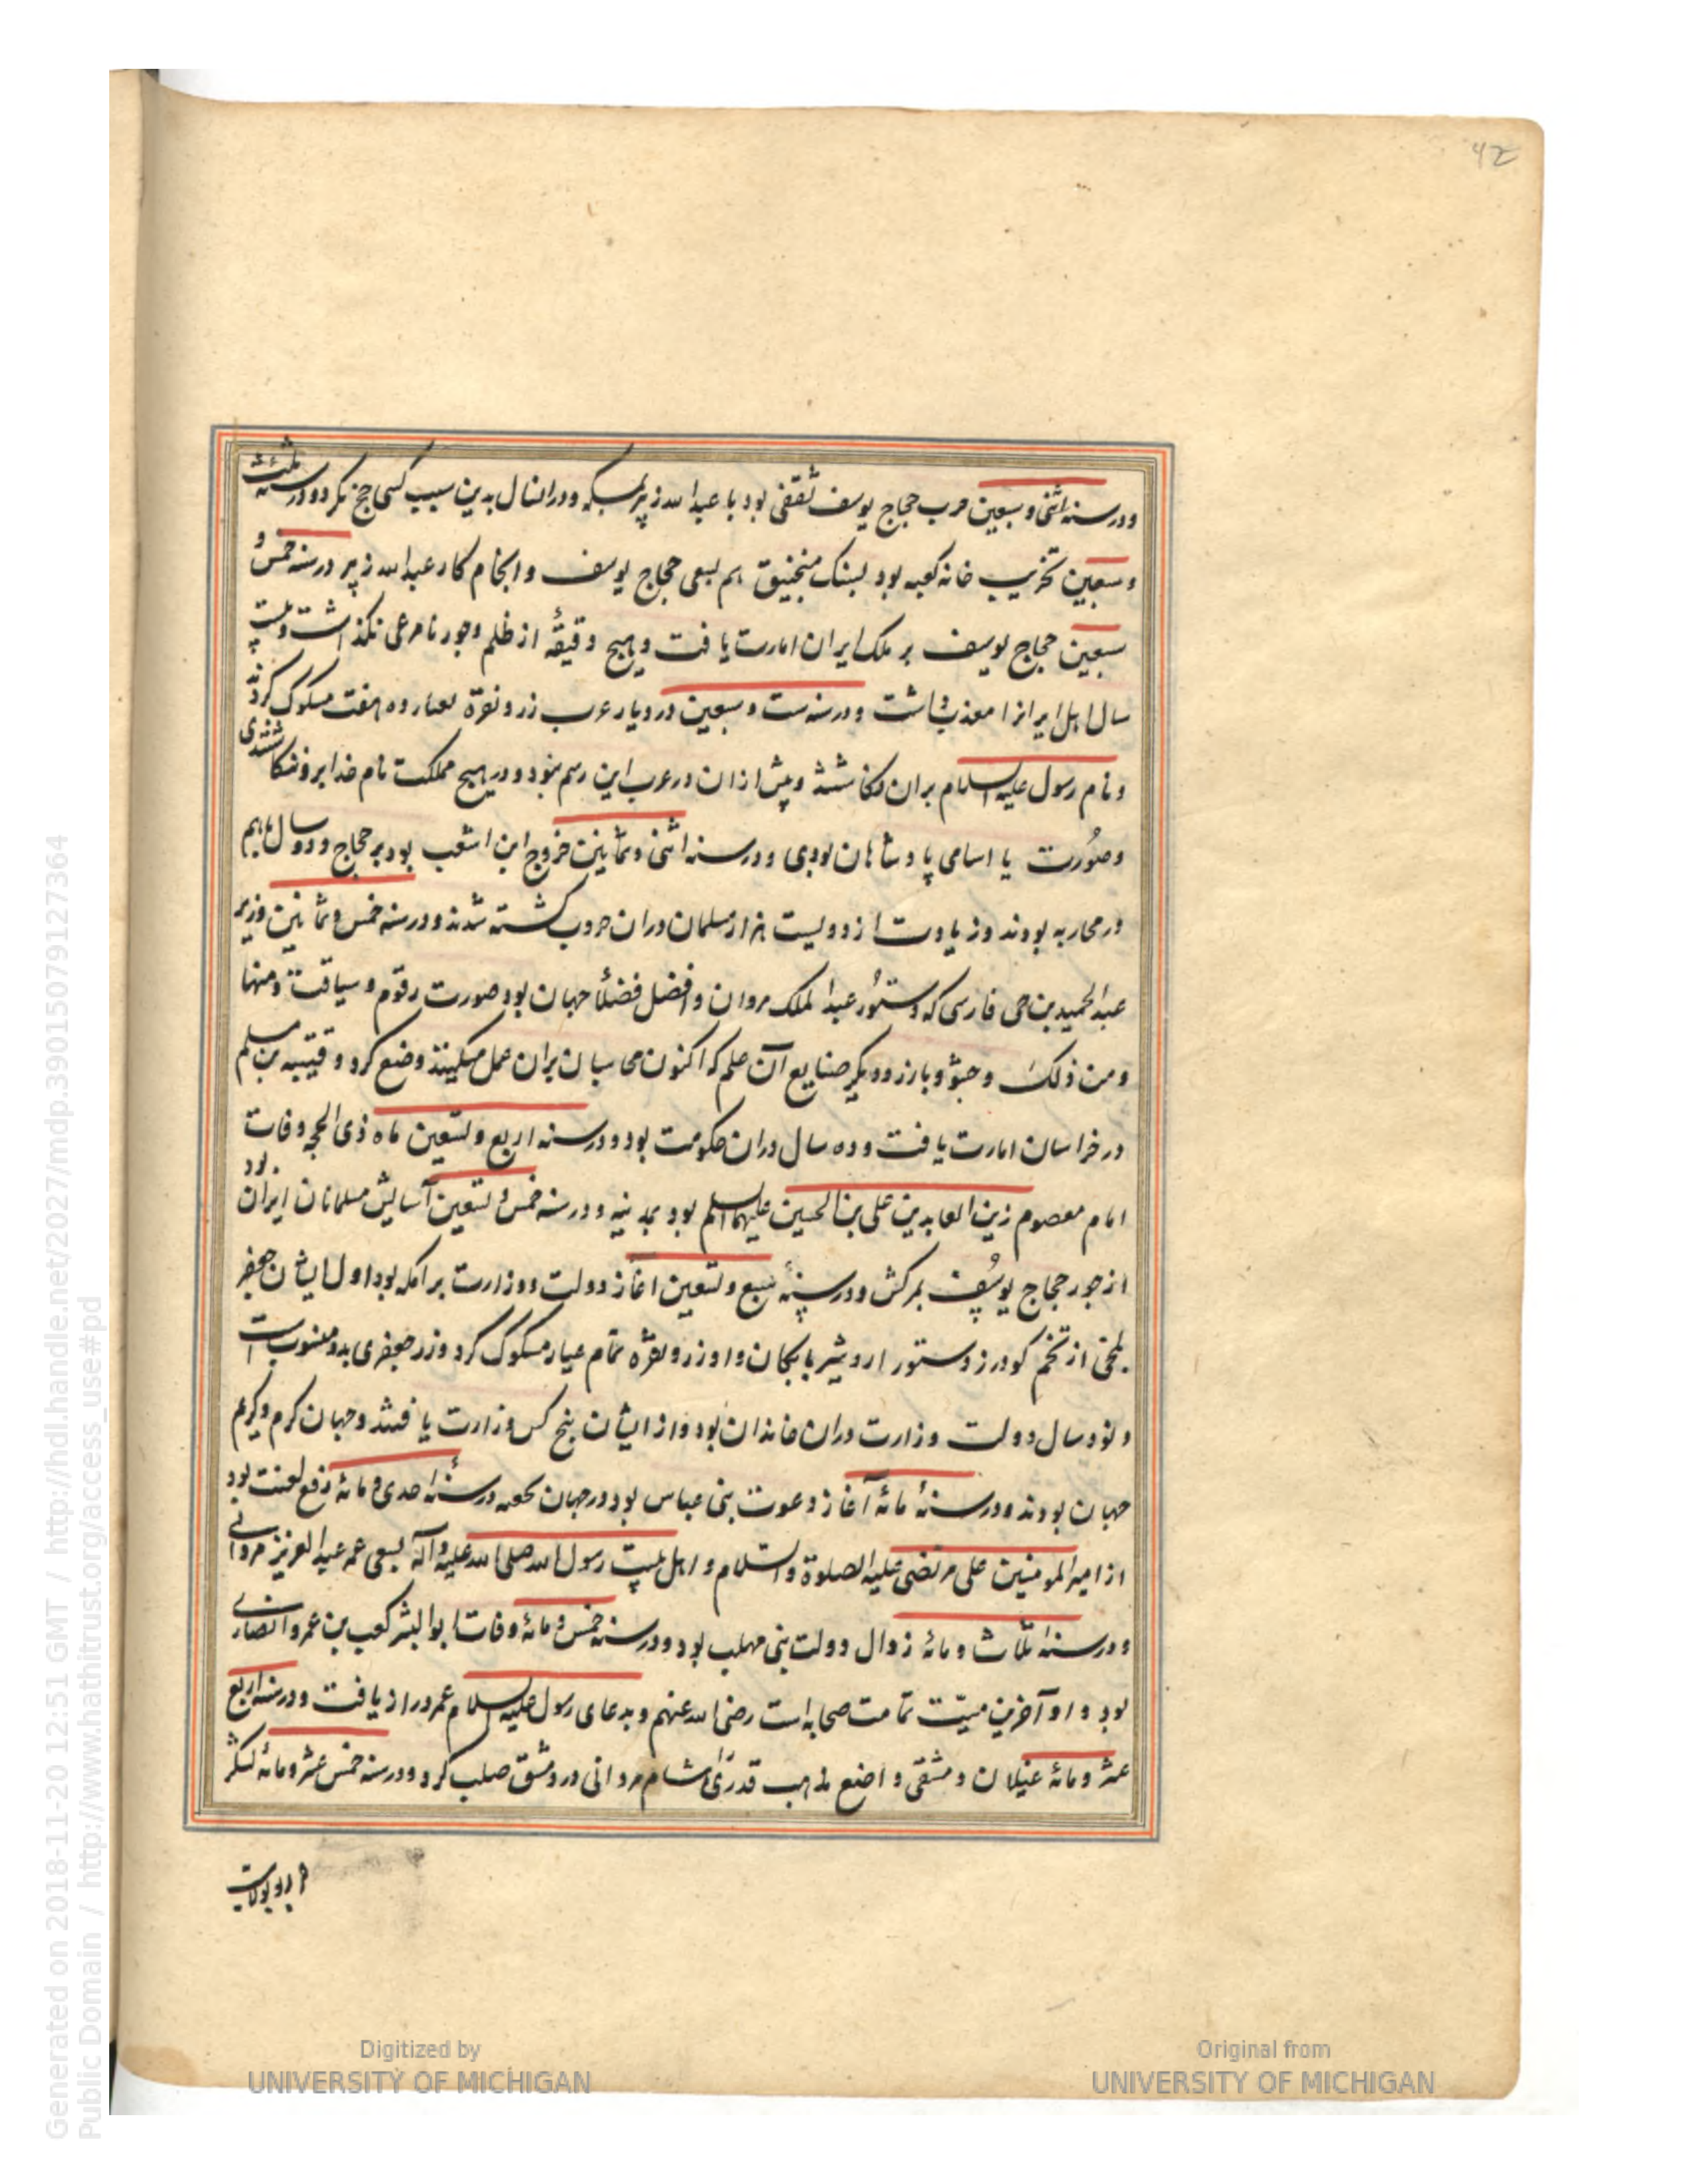 42
ودر سنه اثنی و سبعین حرب حجاج یوسف ثقفی بود با عبدالله زبیر بمکه ودران سال بدین سبب کسی حج نکرد ودر سنه ثلث
و سبعین تخریب خانه کعبه بود بسنک منجنیق هم بسعی حجاج یوسف وانجام کار عبدالله زبیر درسنه خمس و
سبعین حجاج یوسف بر ملک ایران امارت یافت وهیچ دقیقهٔ از ظلم وجور نامرعی نکذاشت و بیست
سال اهل ایرانرا معذب داشت ودرسنه ست و سبعین در دیار عرب زر ونقرة بعیار ده هفت مسکوک کردند
ونام رسول علیه السلام بران نکاشتند وپیش ازان درعرب این رسم نبود ودر هیچ مملکت نام خدا برو ننکاشتندی
وصورت یا اسامی پادشاهان بودی ودرسنه اثنی وثمانین خروج ابن اشعب بود بر حجاج ودو سال باهم
درمحاربه بودند وزیادت از دویست هزار مسلمان دران حروب کشته شدند ودرسنه خمس وثمانین وزیر
عبدالحمید بن حی فارسی که دستور عبدالملک مروان وافضل فضلاٴ جهان بود صورت رقوم و سیاقت ومنها
ومن ذلک وحشو وبارز ودیکر صنایع آن علم که اکنون محاسبان بران عمل میکنند وضع کرد وقتیبه بن مسلم
درخراسان امارت یافت وده سال دران حکومت بود ودرسنه اربع وتسعین ماه ذی الحجه وفات
امام معصوم زین العابدین علی بن الحسین علیهما السلم بود بمدینه ودرسنه خمس وتسعین آسایش مسلمانان ایران بود
ازجور حجاج یوسف بمرکش ودر سنهٔ سبع وتسعین اغاز دولت ووزارت برامکه بود اول ایشان جعفر
بلخی از تخم کودرز دستور اردشیر بابکان واو زر ونقره تمام عیار مسکوک کرد وزر جعفری بدو منسوبست
ونود سال دولت وزارت دران خاندان بود واز ایشان پنج کس وزارت یافتند وجهان کرم وکریم
جهان بودند ودرسنهٔ مائهٔ آغاز دعوت بنی عباس بود درجهان درسنهٔ احدی و مائهٔ رفع لعنت بود
از امیر المومنین علی مرتضی علیه الصلوة والسلام و اهل بیت رسول الله صلی الله علیه وآله بسعی عمر عبدالعزیز مروانی
ودرسنهٔ ثلاث ومائهٔ زوال دولت بنی مهلب بود ودرسنه خمس و مائهٔ وفات ابوالبشر کعب بن عمرو انصاری
بود و او آخرین میّت تمامت صحابه است رضی الله عنهم وبدعای رسول علیه السلام عمر دراز یافت ودرسنه اربع
عشر ومائهٔ غیلان دمشقی واضع مذهب قدری هشام مروانی دردمشق صلب کرد ودرسنه خمس عشر ومائه لشکر
Generated on 2018-11-20 12:51 GMT / http://hdl.handle.net/2027/mdp.39015079127364
Public Domain / http://www.hathitrust.org/access_use#pd
Digitized by
UNIVERSITY OF MICHIGAN
Original from
UNIVERSITY OF MICHIGAN